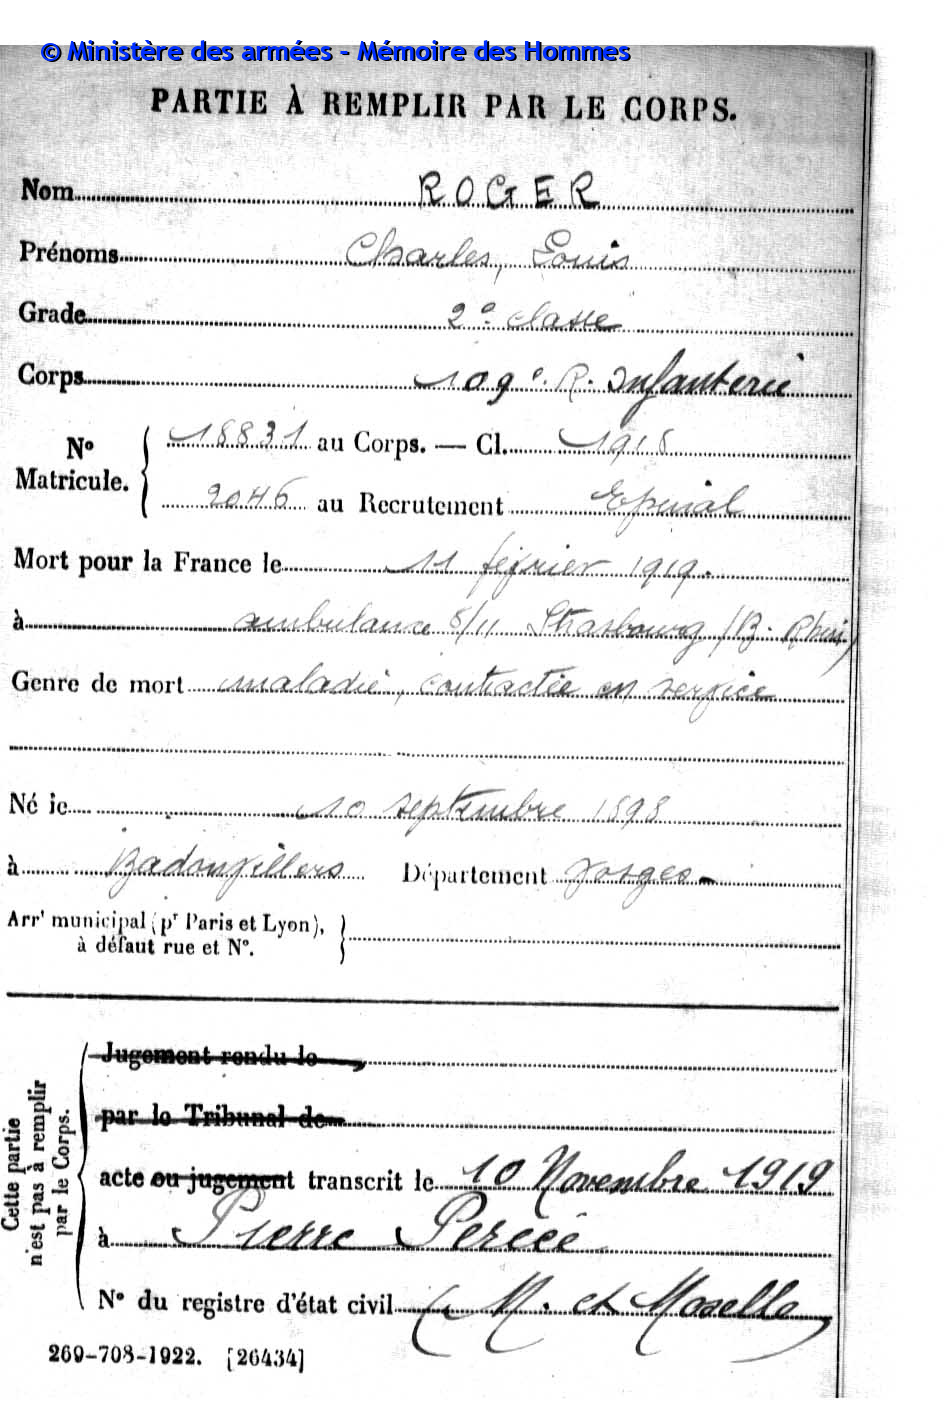 © Ministère des armées - Mémoire des Hommes
PARTIE À REMPLIR PAR LE CORPS.
Nom ROGER
Prénoms Charles, Louis
Grade 2e classe
Corps 109e. R. Infanterie
No Matricule. { 18831 au Corps. — Cl. 1918
2046 au Recrutement Epinal
Mort pour la France le 11 février 1919.
à ambulance 5/11 Strasbourg (B. Rhin)
Genre de mort maladie, contractée en service
Né le 10 septembre 1898
à Badonvillers Département Vosges
Arrt municipal (pr Paris et Lyon), }
à défaut rue et No.
Cette partie
n'est pas à remplir
par le Corps.
Jugement rendu le
par le Tribunal de
acte ou jugement transcrit le 10 Novembre 1919
à Pierre Percée
No du registre d'état civil (M. et Moselle)
269-708-1922. [26434]